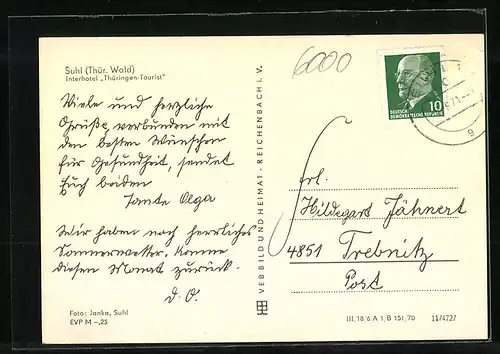 Suhl (Thür. Wald)
Interhotel „Thüringen-Tourist"
Viele und herzliche
Grüße, verbunden mit
den besten Wünschen
für Gesundheit, sendet
Euch beiden
Tante Olga
Wir haben noch herrliches
Sommerwetter. Komme
diesen Monat zurück.
d. O.
Foto: Janka, Suhl
EVP M –,25
VEB BILD UND HEIMAT · REICHENBACH i. V.
6000
10
DEUTSCHE
DEMOKRATISCHE REPUBLIK
9
Frl.
Hildegart Jähnert
4851 Trebnitz
Post
III/18/6 A 1/B 151/70 11/4727